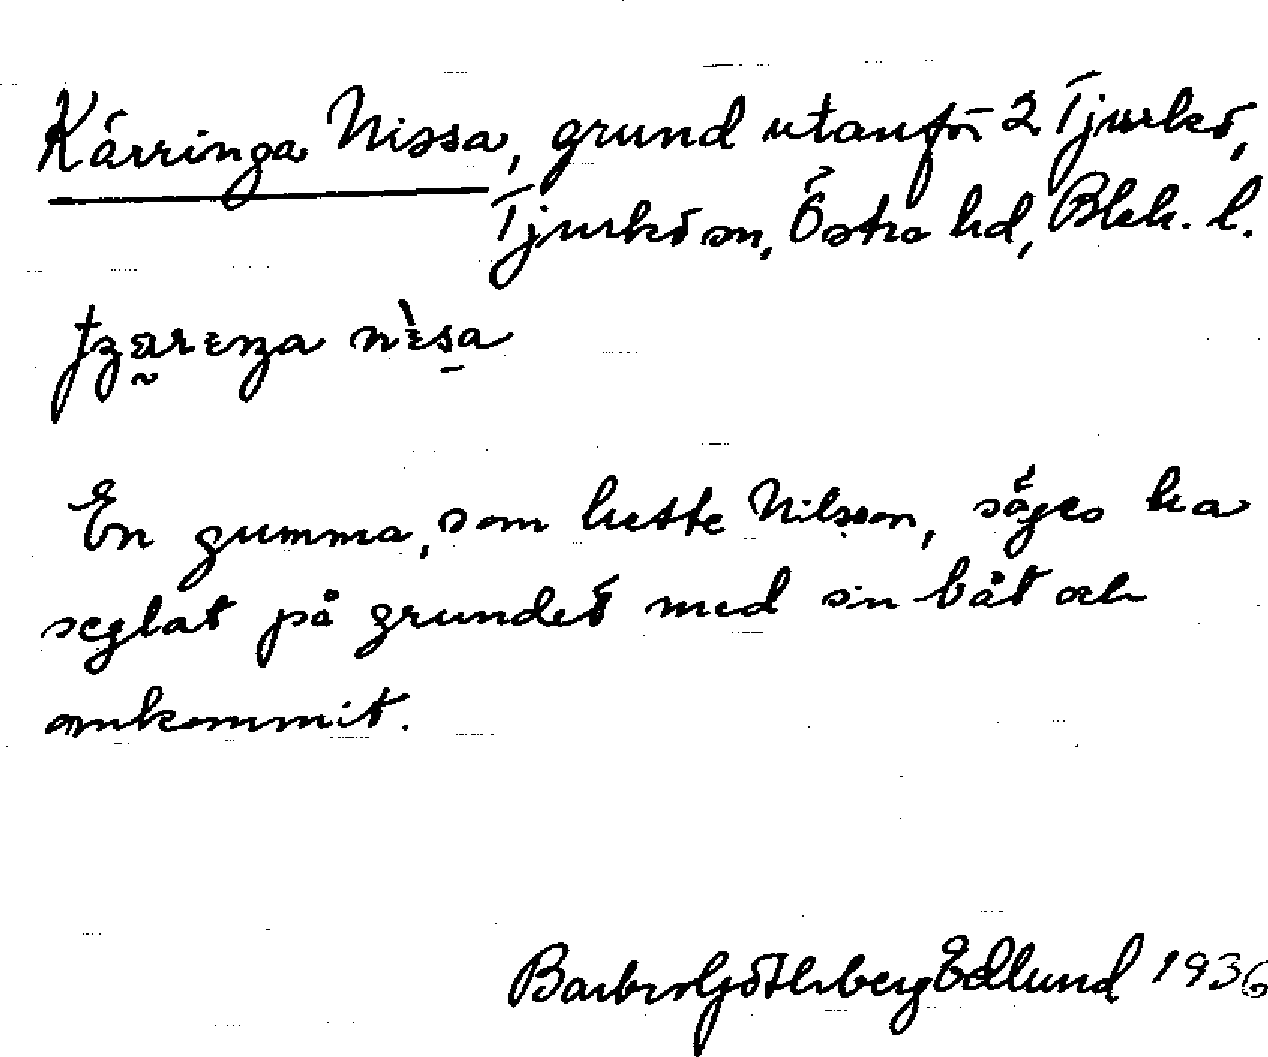 Kärringa Nissa, grund utanför 2 Tjurkö,
Tjurkö sn, Östra hd, Blek. l.
nìsa
En gumma, som hette Nilsson, säges ha
seglat på grundet med sin båt och
omkommit.
Barbro Göthberg Edlund 1936